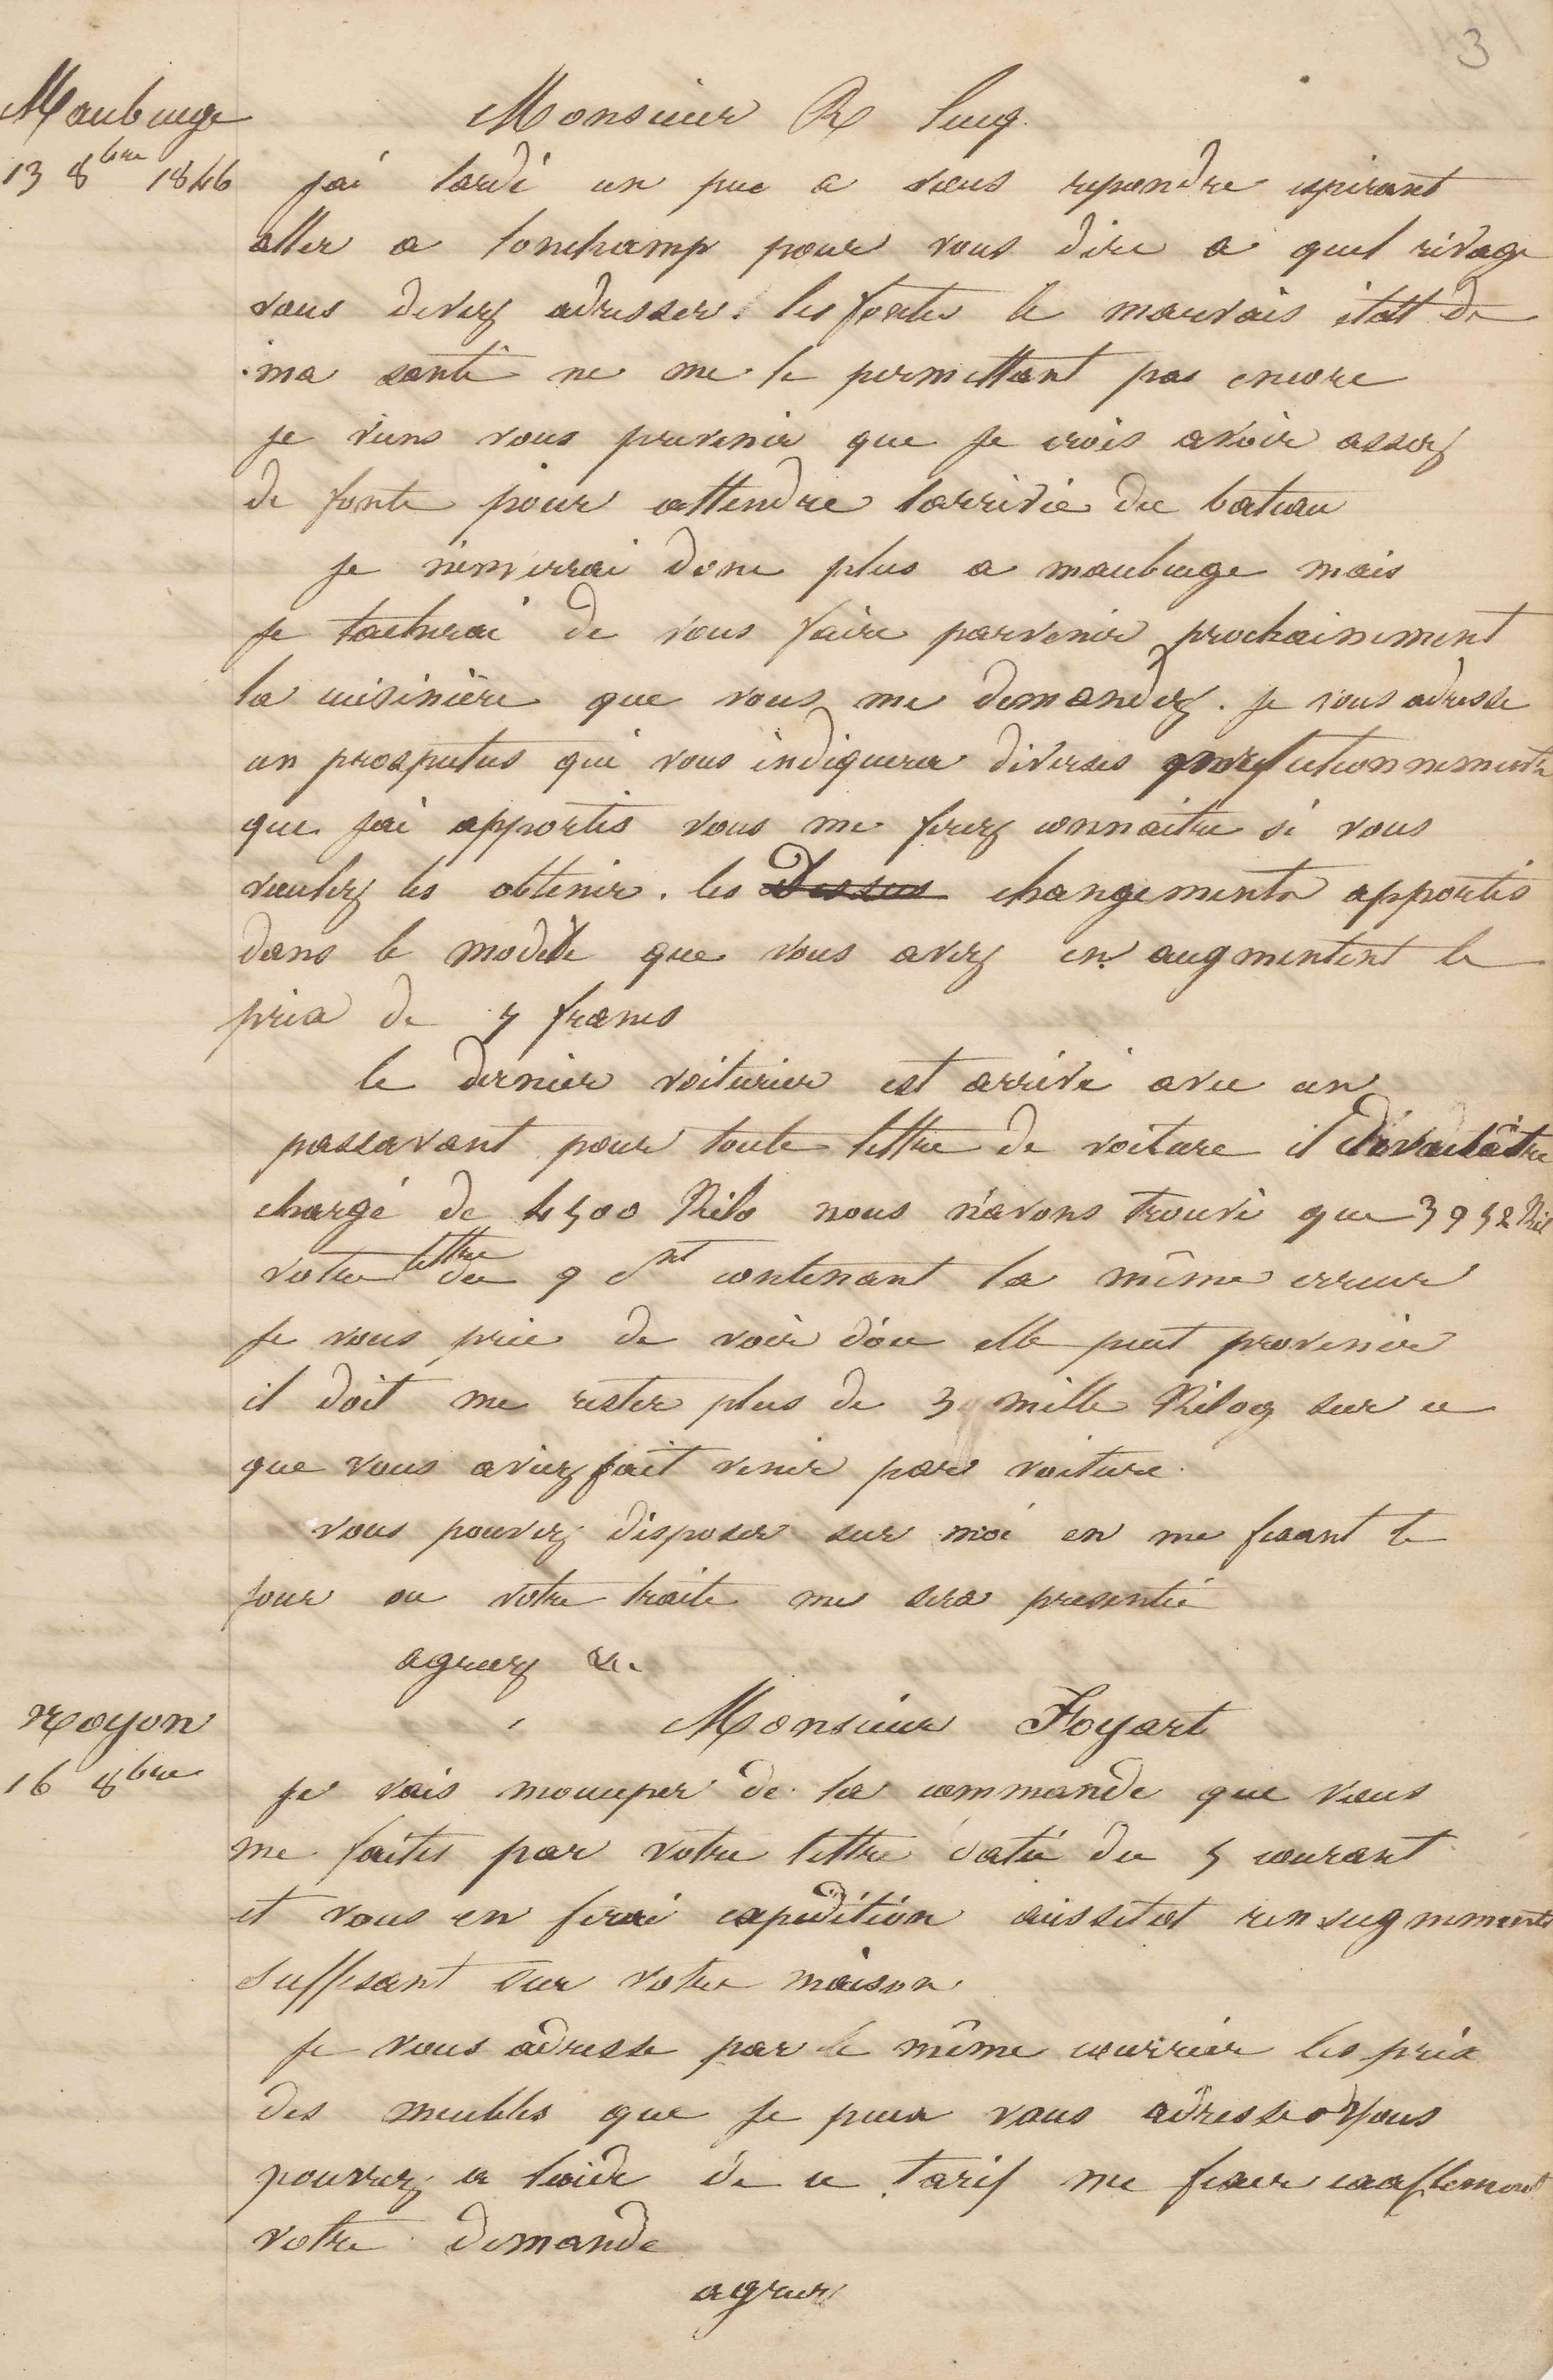 3
Maubeuge
13 8bre 1846
Monsieur R Sucq.
jai tardé un peu a vous repondre esperant
aller a lonchamp pour vous dire a quel rivage
vous devez adresser les fontes le mauvais état de
ma santé ne me le permettant pas encore
je viens vous prevenir que je crois avoir assez
de fonte pour attendre larrivée du bateau
je n'enverrai donc plus a maubeuge mais
je tacherai de vous faire parvenir prochainement
la cuisinière que vous me demandez. je vous adresse
un prospectus qui vous indiquera diverses perfectionnements
que jai apportés vous me ferez connaitre si vous
voulez les obtenir. les Dessus changements apportés
dans le modele que vous avez en augmentent le
prix de 5 francs
le dernier voiturier est arrivé avec un
passavant pour toute lettre de voiture il devait être
chargé de 4500 Kilo nous n'avons trouvé que 3952 Kil
votre lettre du 9 ct contenant la même erreur
je vous prie de voir d'ou elle peut provenir
il doit me rester plus de 3 mille Kilog sur ce
que vous aviez fait venir par voiture.
vous pouvez disposer sur moi en me fixant le
jour ou votre traite me sera presentée
agreez &c.
Noyon
16 8bre
Monsieur Hoyart
je vais moccuper de la commande que vous
me faites par votre lettre datée du 5 courant
et vous en ferai expedition aussitot renseignements
suffisant sur votre maison
je vous adresse par le même courrier les prix
des meubles que je peux vous adresser Vous
pourrez a laide de ce tarif me fixer exactement
votre demande
agreez